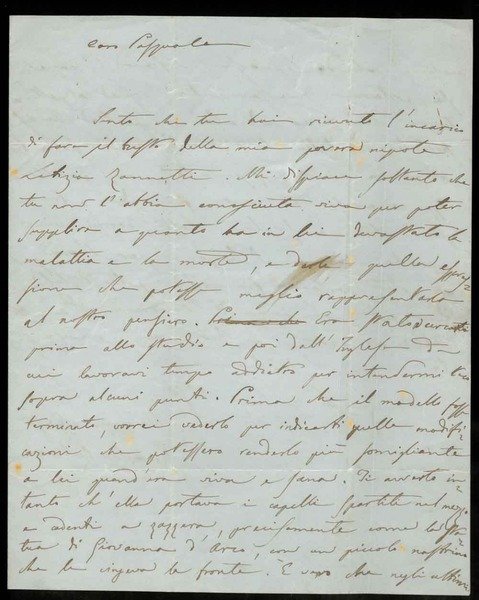 Caro Pasquale
Sento che tu hai ricevuto l'incarico
di fare il busto della mia povera nipote
Letizia Zannetti. Mi dispiace soltanto che
tu non l'abbia conosciuta viva per poter
supplire a quanto ha in lei devastato la
malattia e la morte, e darle quella espres=
sione che potesse meglio rappresentarla
al nostro pensiero. Era stato
prima allo studio e poi dall'Inglese da
cui lavoravi tempo addietro per intendermi teco
sopra alcuni punti. Prima che il modello fosse
terminato, vorrei vederlo per indicarti quelle modifi=
cazioni che potessero renderlo più somigliante
a lei quand'era viva e sana. Ti avverto in=
tanto ch'ella portava i capelli spartiti nel mezzo
e adenti a zazzera, precisamente come la sta=
tua di Giovanna d'Arco, con un piccolo nastrino
che le cingeva la fronte. È vero che negli ultimi